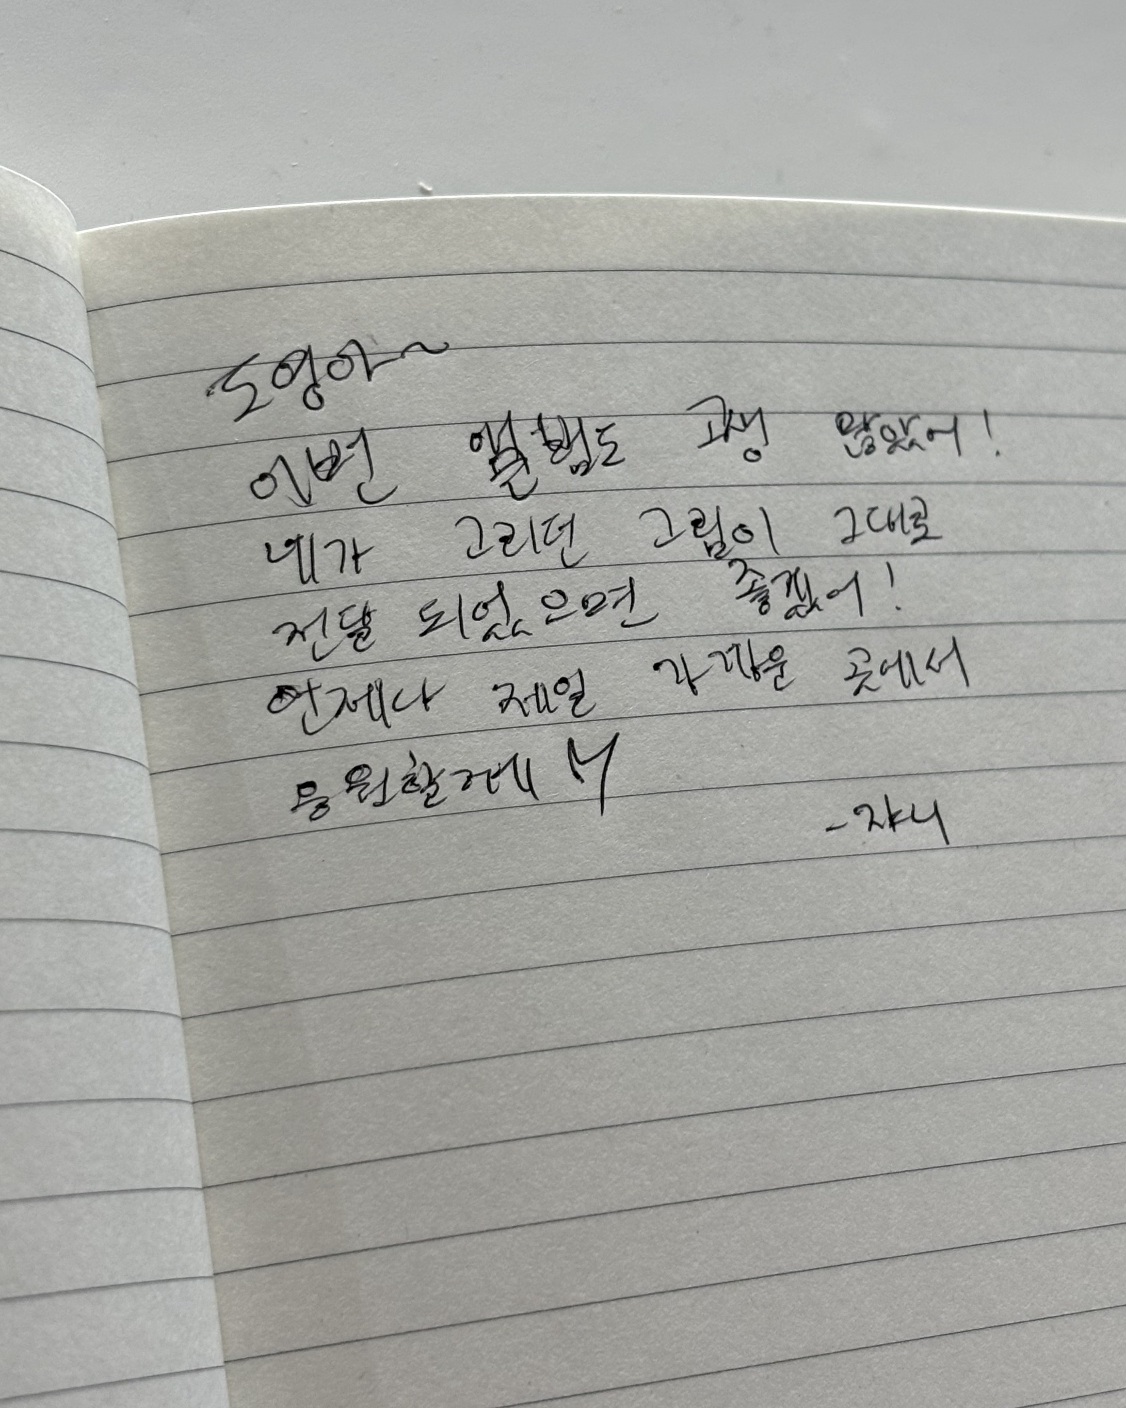 도영아~
이번 앨범도 고생 많았어!
네가 그리던 그림이 그대로
전달 되었으면 좋겠어!
언제나 제일 가까운 곳에서
응원할게
-쟈니